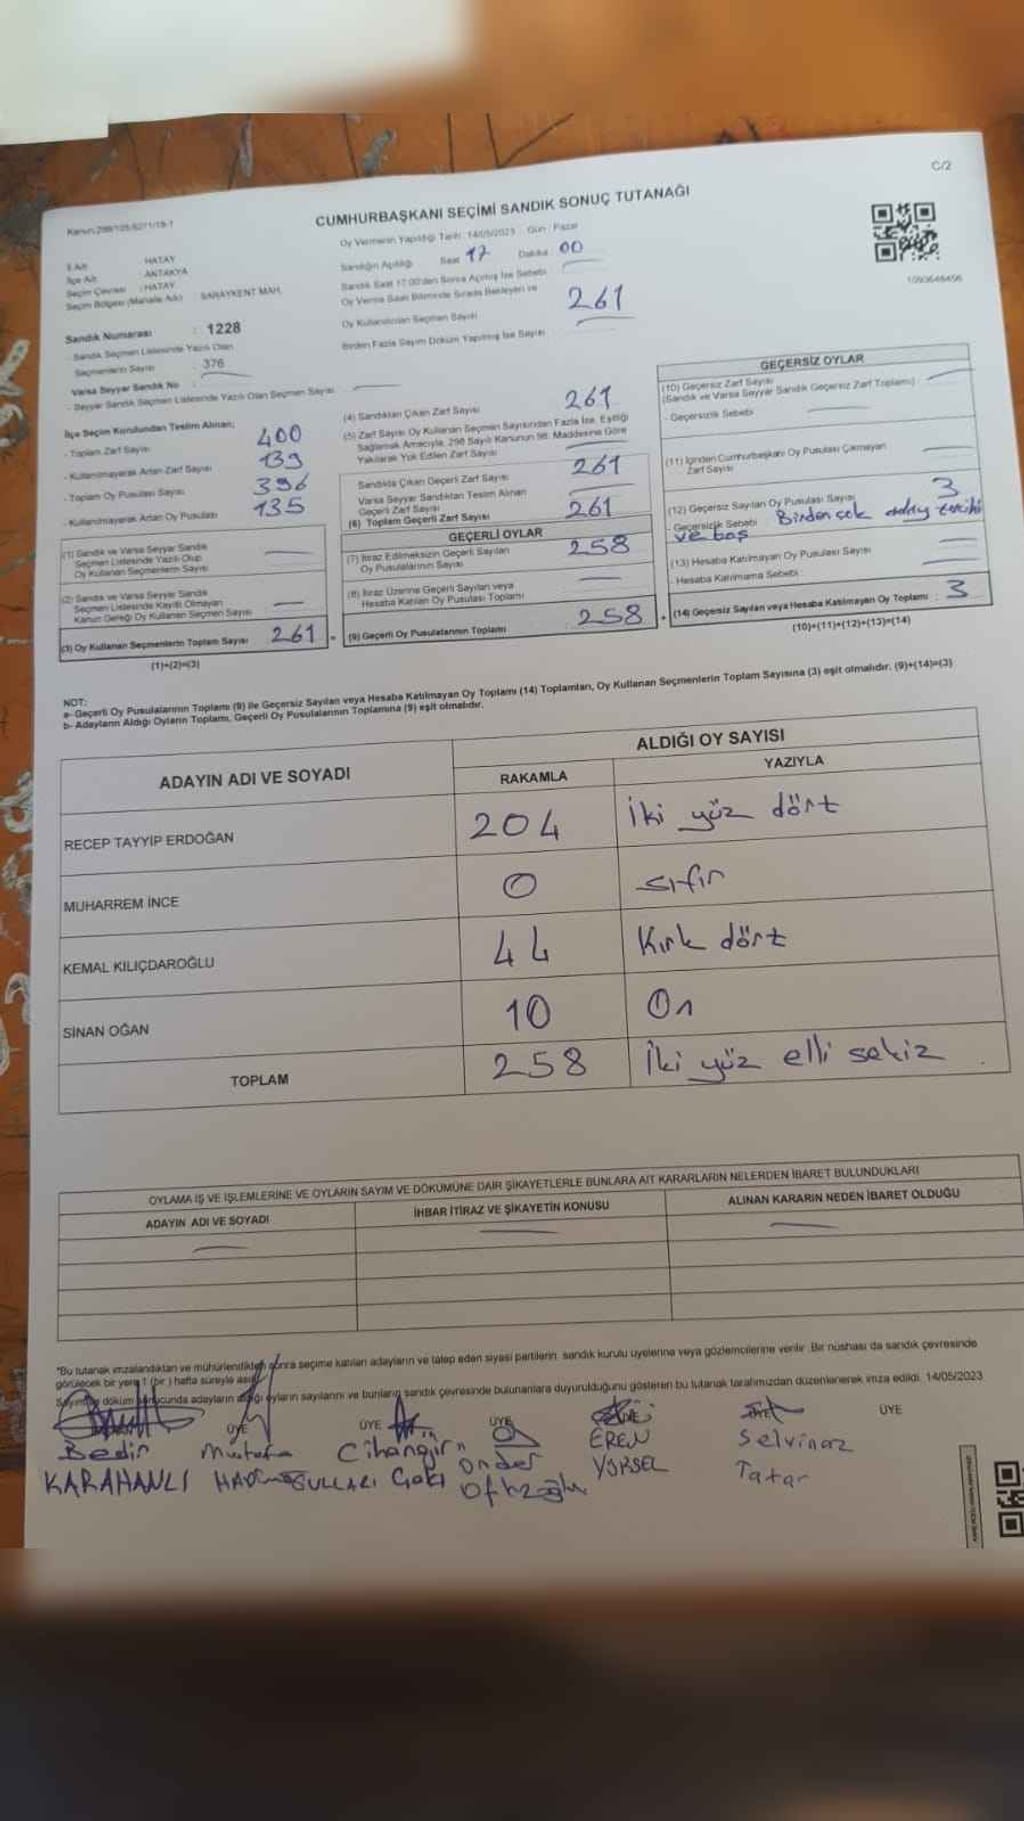 C/2
CUMHURBAŞKANI SEÇİMİ SANDIK SONUÇ TUTANAĞI
Oy Vermenin Yapıldığı Tarih: 14/05/2023 Gün: Pazar
İl Adı HATAY
İlçe Adı : ANTAKYA
Seçim Çevresi : HATAY
Seçim Bölgesi (Mahalle Adı) SARAYKENT MAH.
Sandık Numarası : 1228
- Sandık Seçmen Listesinde Yazılı Olan
Seçmenlerin Sayısı : 376
Varsa Seyyar Sandık No
- Seyyar Sandık Seçmen Listesinde Yazılı Olan Seçmen Sayısı
Sandığın Açıldığı Saat 17 Dakika 00
Sandık Saat 17:00'den Sonra Açılmış İse Sebebi
Oy Verme Saati Bitiminde Sırada Bekleyen ve
Oy Kullandırılan Seçmen Sayısı 261
Birden Fazla Sayım Döküm Yapılmış İse Sayısı
1090648456
İlçe Seçim Kurulundan Teslim Alınan;
- Toplam Zarf Sayısı 400
- Kullanılmayarak Artan Zarf Sayısı 139
- Toplam Oy Pusulası Sayısı 396
- Kullanılmayarak Artan Oy Pusulası 135
(1) Sandık ve Varsa Seyyar Sandık
Seçmen Listesinde Yazılı Olup
Oy Kullanan Seçmenlerin Sayısı
(2) Sandık ve Varsa Seyyar Sandık
Seçmen Listesinde Kayıtlı Olmayan
Kanun Gereği Oy Kullanan Seçmen Sayısı
(3) Oy Kullanan Seçmenlerin Toplam Sayısı 261
(1)+(2)=(3)
(4) Sandıktan Çıkan Zarf Sayısı 261
(5) Zarf Sayısı Oy Kullanan Seçmen Sayısından Fazla İse, Eşitliği
Sağlamak Amacıyla, 298 Sayılı Kanunun 98. Maddesine Göre
Yakılarak Yok Edilen Zarf Sayısı
Sandıkta Çıkan Geçerli Zarf Sayısı 261
Varsa Seyyar Sandıktan Teslim Alınan
Geçerli Zarf Sayısı
(6) Toplam Geçerli Zarf Sayısı 261
GEÇERLİ OYLAR
(7) İtiraz Edilmeksizin Geçerli Sayılan
Oy Pusulalarının Sayısı 258
(8) İtiraz Üzerine Geçerli Sayılan veya
Hesaba Katılan Oy Pusulası Toplamı
(9) Geçerli Oy Pusulalarının Toplamı : 258
GEÇERSİZ OYLAR
(10) Geçersiz Zarf Sayısı
(Sandık ve Varsa Seyyar Sandık Geçersiz Zarf Toplamı)
- Geçersizlik Sebebi
(11) İçinden Cumhurbaşkanı Oy Pusulası Çıkmayan
Zarf Sayısı
(12) Geçersiz Sayılan Oy Pusulası Sayısı 3
- Geçersizlik Sebebi Birden çok aday tercihi
ve boş
(13) Hesaba Katılmayan Oy Pusulası Sayısı
- Hesaba Katılmama Sebebi
(14) Geçersiz Sayılan veya Hesaba Katılmayan Oy Toplamı : 3
(10)+(11)+(12)+(13)=(14)
NOT:
a- Geçerli Oy Pusulalarının Toplamı (9) ile Geçersiz Sayılan veya Hesaba Katılmayan Oy Toplamı (14) Toplamları, Oy Kullanan Seçmenlerin Toplam Sayısına (3) eşit olmalıdır. (9)+(14)=(3)
b- Adayların Aldığı Oyların Toplamı, Geçerli Oy Pusulalarının Toplamına (9) eşit olmalıdır.
ADAYIN ADI VE SOYADI ALDIĞI OY SAYISI
RAKAMLA YAZIYLA
RECEP TAYYİP ERDOĞAN 204 İki yüz dört
MUHARREM İNCE 0 sıfır
KEMAL KILIÇDAROĞLU 44 Kırk dört
SİNAN OĞAN 10 On
TOPLAM 258 İki yüz elli sekiz
OYLAMA İŞ VE İŞLEMLERİNE VE OYLARIN SAYIM VE DÖKÜMÜNE DAİR ŞİKAYETLERLE BUNLARA AİT KARARLARIN NELERDEN İBARET BULUNDUKLARI
ADAYIN ADI VE SOYADI İHBAR İTİRAZ VE ŞİKAYETİN KONUSU ALINAN KARARIN NEDEN İBARET OLDUĞU
*Bu tutanak imzalandıktan ve mühürlendikten sonra seçime katılan adayların ve talep eden siyasi partilerin sandık kurulu üyelerine veya gözlemcilerine verilir. Bir nüshası da sandık çevresinde
görülecek bir yere 1 (bir) hafta süreyle asılır.
Sayım ve döküm sonucunda adayların aldığı oyların sayılarını ve bunların sandık çevresinde bulunanlara duyurulduğunu gösteren bu tutanak tarafımızdan düzenlenerek imza edildi. 14/05/2023
ÜYE ÜYE ÜYE ÜYE
Bedir Mustafa Cihangir Önder EREN Selvinaz
KARAHANLI YÜKSEL Tatar